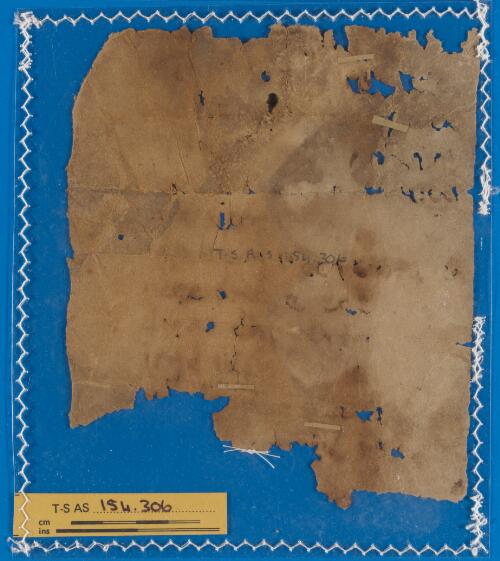 T-S A.S 154.306
T-S AS 154.306
cm
ins